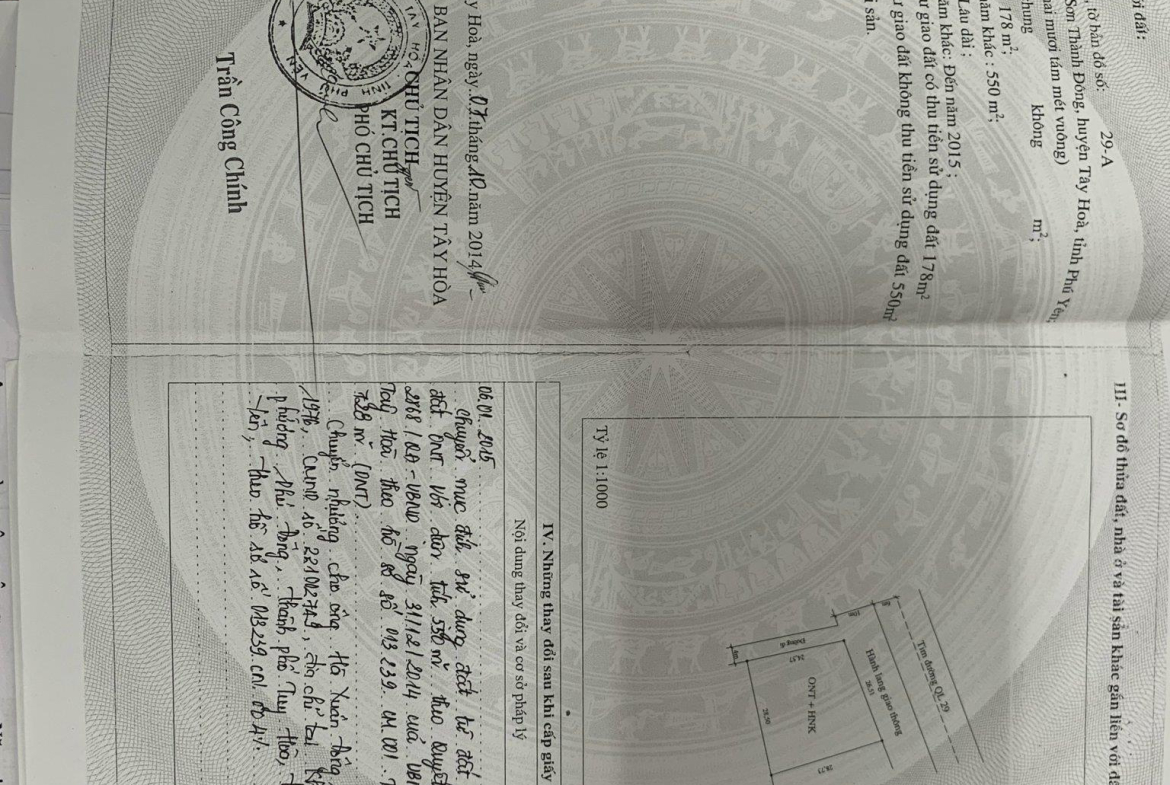 ời đất:
, tờ bản đồ số: 29-A
Sơn Thành Đông, huyện Tây Hoà, tỉnh Phú Yên;
ai mươi tám mét vuông)
hung không m²;
178 m²;
ăm khác : 550 m²;
Lâu dài ;
ăm khác: Đến năm 2015 ;
ư giao đất có thu tiền sử dụng đất 178m²
ư giao đất không thu tiền sử dụng đất 550m²
i sản.
y Hoà, ngày 07 tháng 10 năm 2014
BAN NHÂN DÂN HUYỆN TÂY HÒA
CHỦ TỊCH
KT CHỦ TỊCH
PHÓ CHỦ TỊCH
TÂY HOÀ TỈNH PHÚ YÊN
Trần Công Chính
III- Sơ đồ thửa đất, nhà ở và tài sản khác gắn liền với đ
Tim đường QL 29
Hành lang giao thông
Đường đi
4m
ONT + HNK
Tỷ lệ 1:1000
IV. Những thay đổi sau khi cấp giấy
Nội dung thay đổi và cơ sở pháp lý
06.01.2015
Chuyển mục đích sử dụng đất từ đất
đất ONT với diện tích 550m² theo Quyết
2868/QĐ-UBND ngày 31/12/2014 của UBN
Tây Hoà theo hồ sơ số 013 239.
728 m² (ONT)
Chuyển nhượng cho ông Hồ Xuân Đông
1976, CMND số địa chỉ tại
phường Phú Đông, thành phố Tuy Hòa,
Yên, theo hồ sơ số 013239.